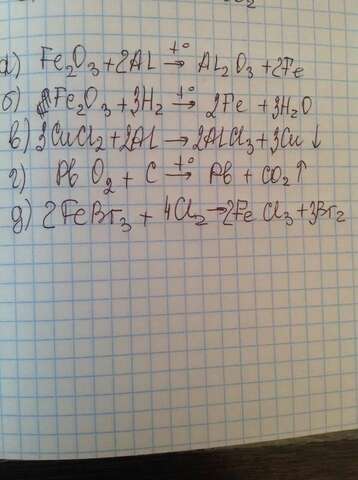 а) Fe₂O₃ + 2Al →t° Al₂O₃ + 2Fe
б) Fe₂O₃ + 3H₂ →t° 2Fe + 3H₂O
в) 3CuCl₂ + 2Al → 2AlCl₃ + 3Cu ↓
г) PbO₂ + C →t° Pb + CO₂ ↑
д) 2FeBr₃ + 4Cl₂ → 2FeCl₃ + 3Br₂